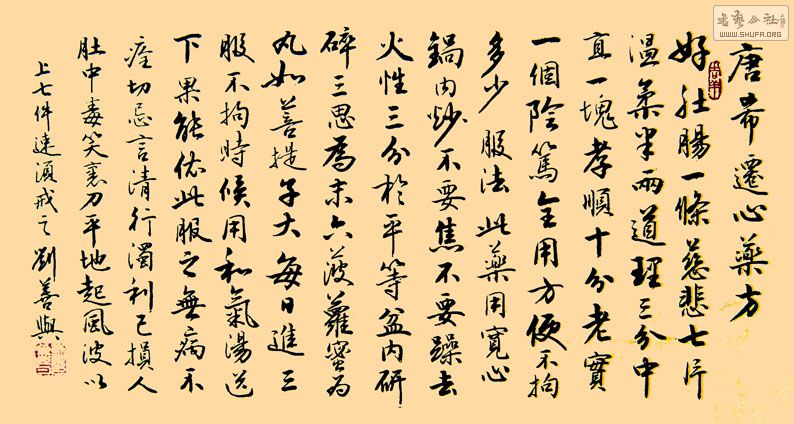 唐希遷心藥方
好肚腸一條慈悲七片
温柔半兩道理三分中
直一塊孝順十分老實
一個陰篤全用方便不拘
多少 服法此藥用寬心
鍋内炒不要焦不要躁去
火性三分於平等盆内研
碎三思爲末六菠蘿蜜为
丸如菩提子大每日進三
服不拘時候用和氣湯送
下果能依此服之無病不
痊切忌言清行濁利己損人
肚中毒笑裏刀平地起風波以
上七件速須戒之 劉善與
書藝公社
WWW.SHUFA.ORG